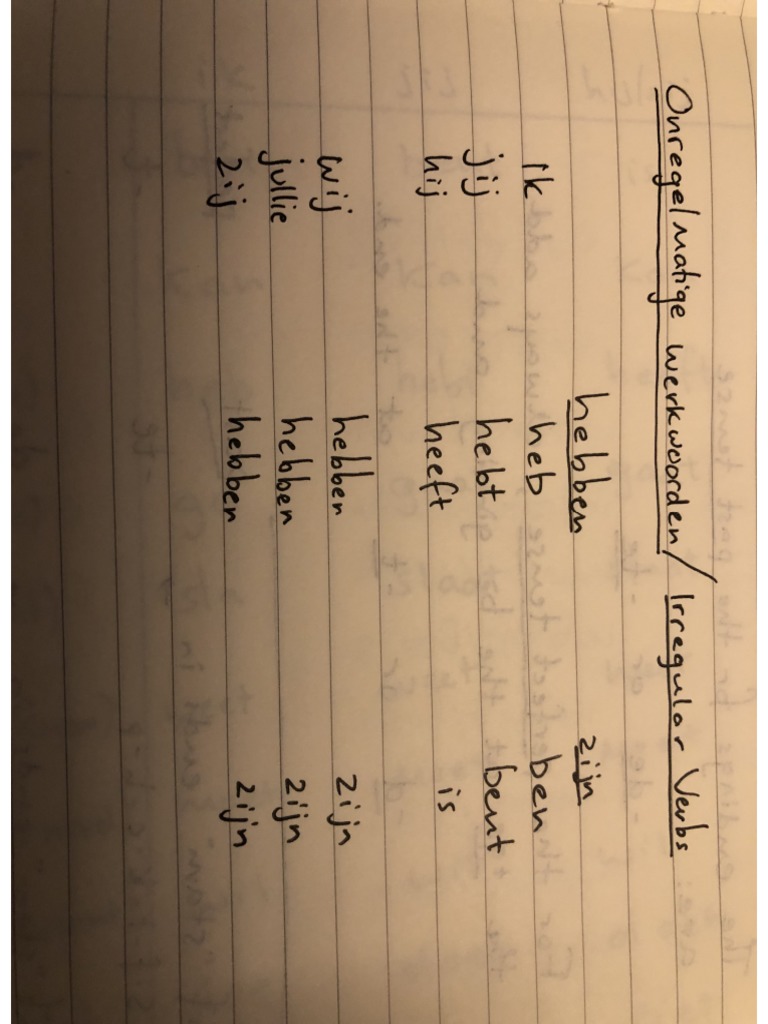 Onregelmatige werkwoorden/Irregular Verbs
hebben zijn
Ik heb ben
jij hebt bent
hij heeft is
wij hebben zijn
jullie hebben zijn
zij hebben zijn